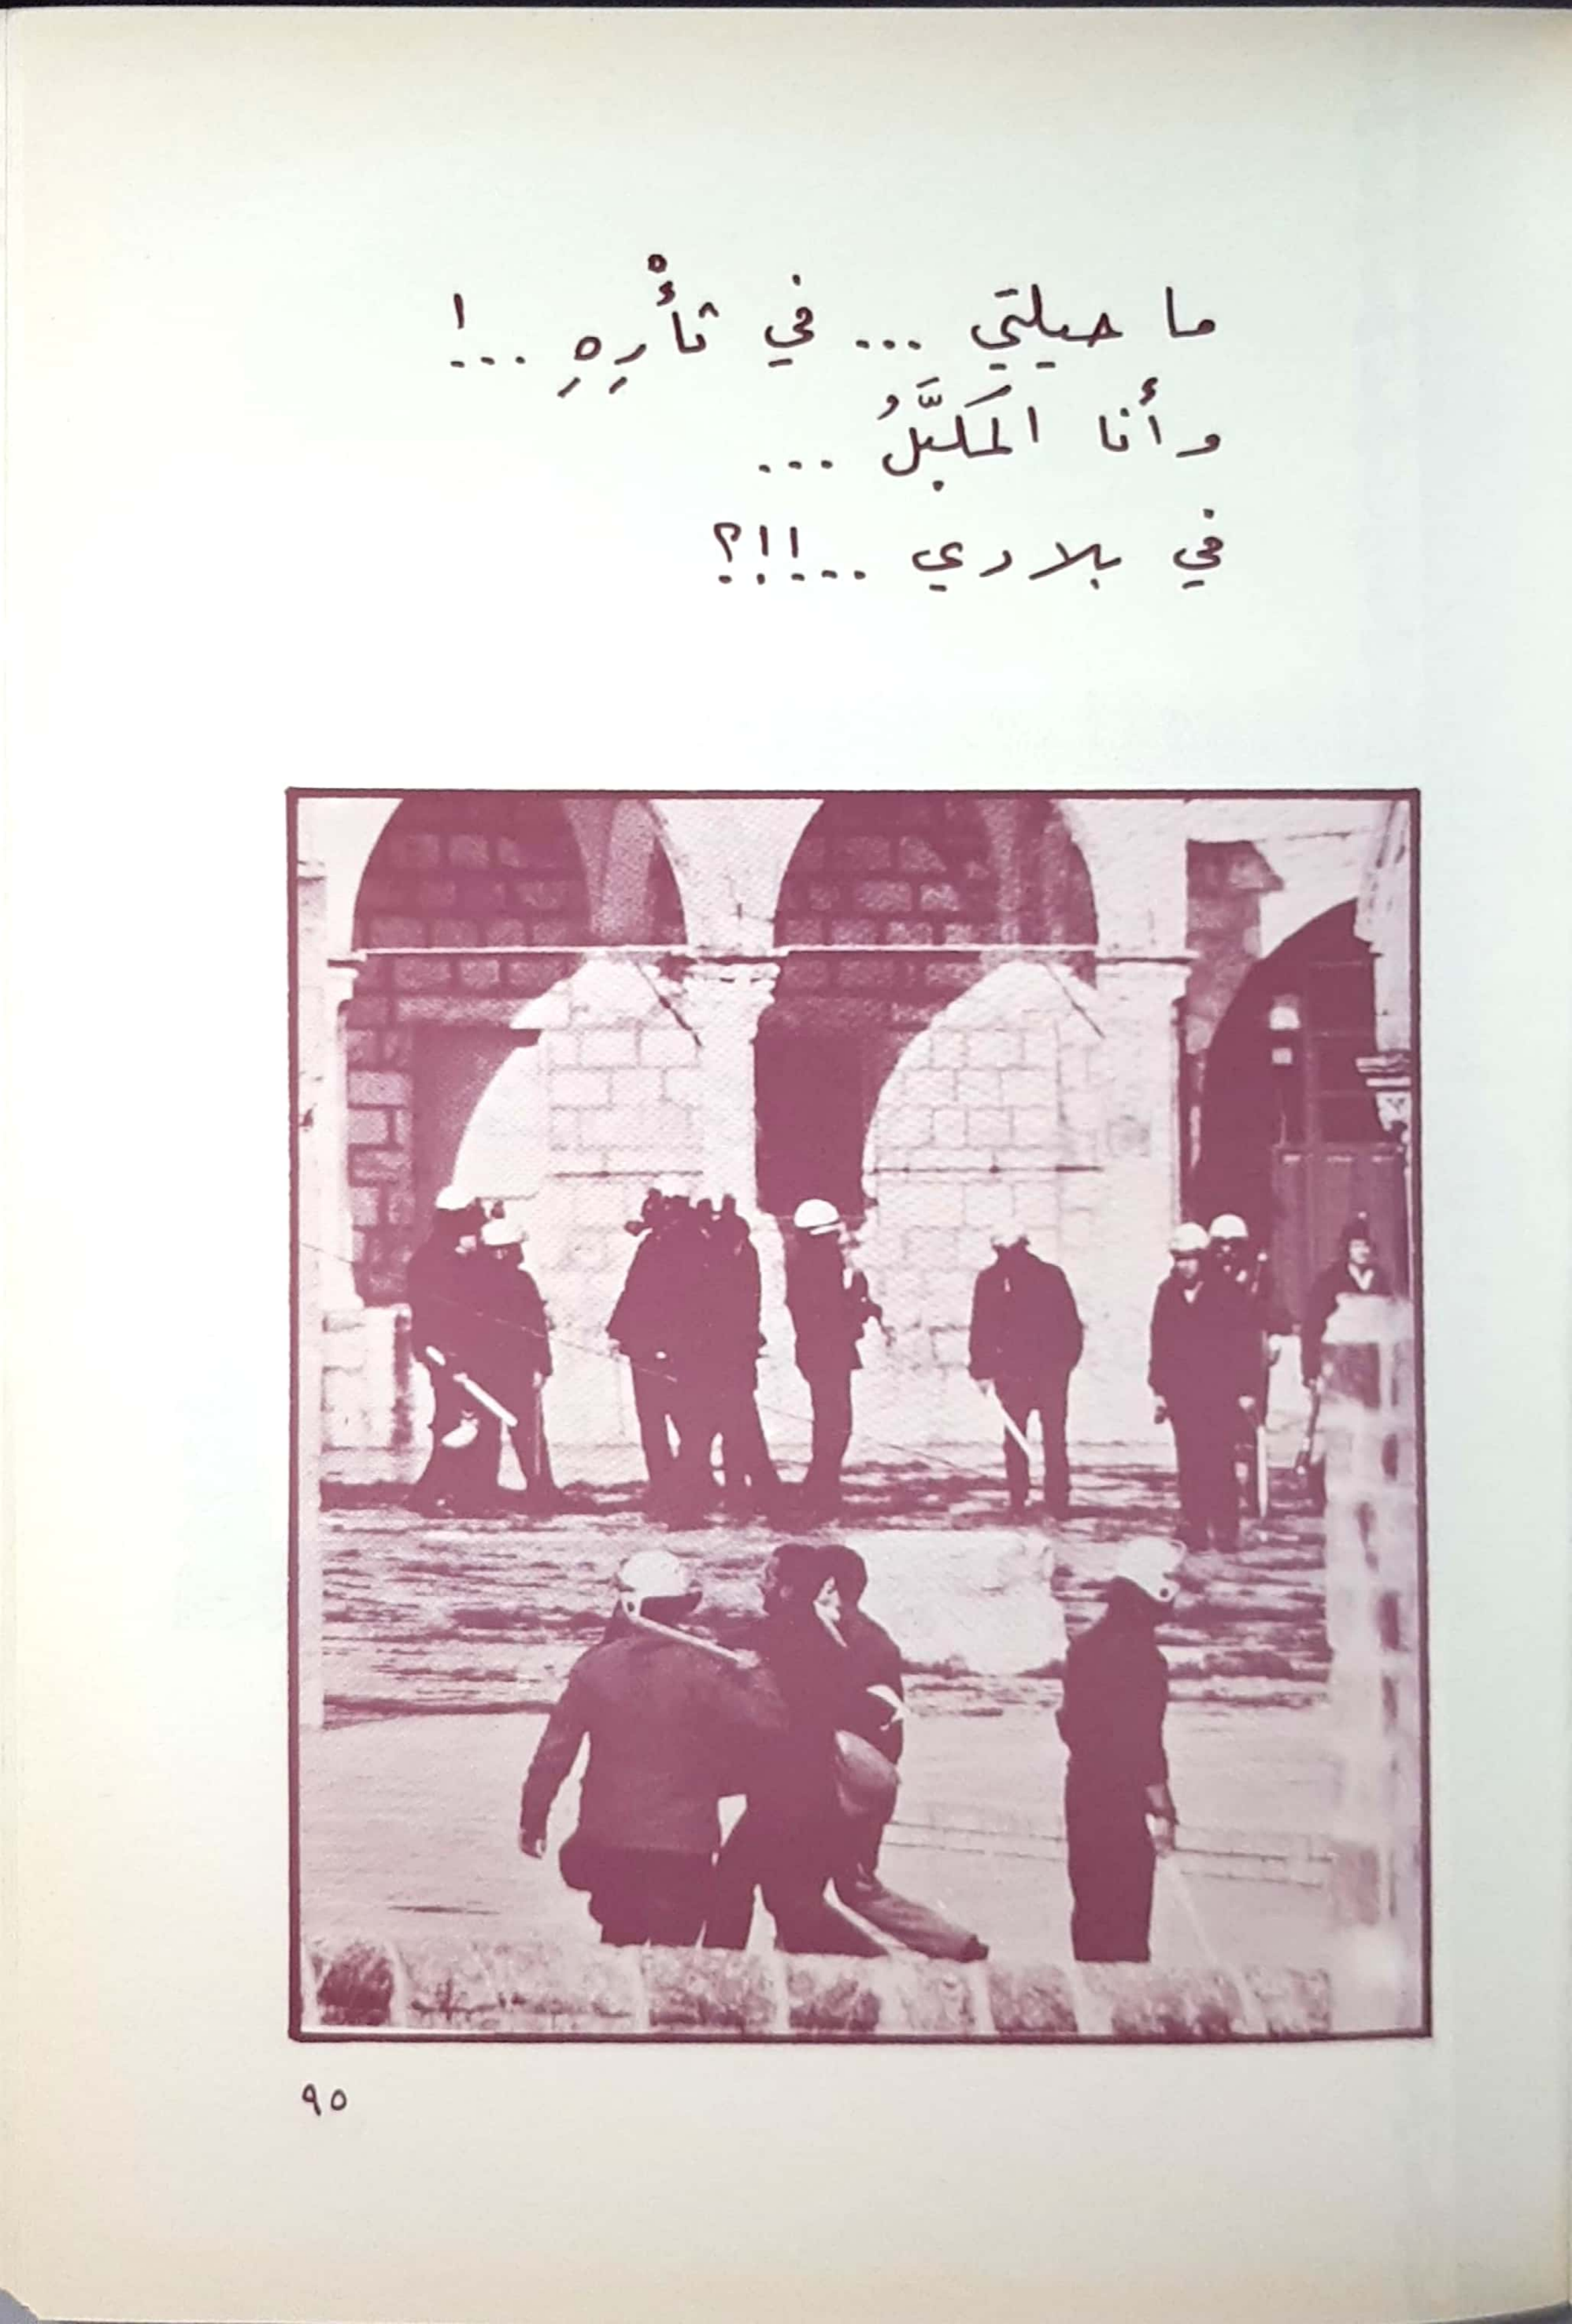 ما حيلتي ... في ثأْرِهِ ...!
وأنا المَكبَّلُ ...
في بلادي ...!!؟
٩٥